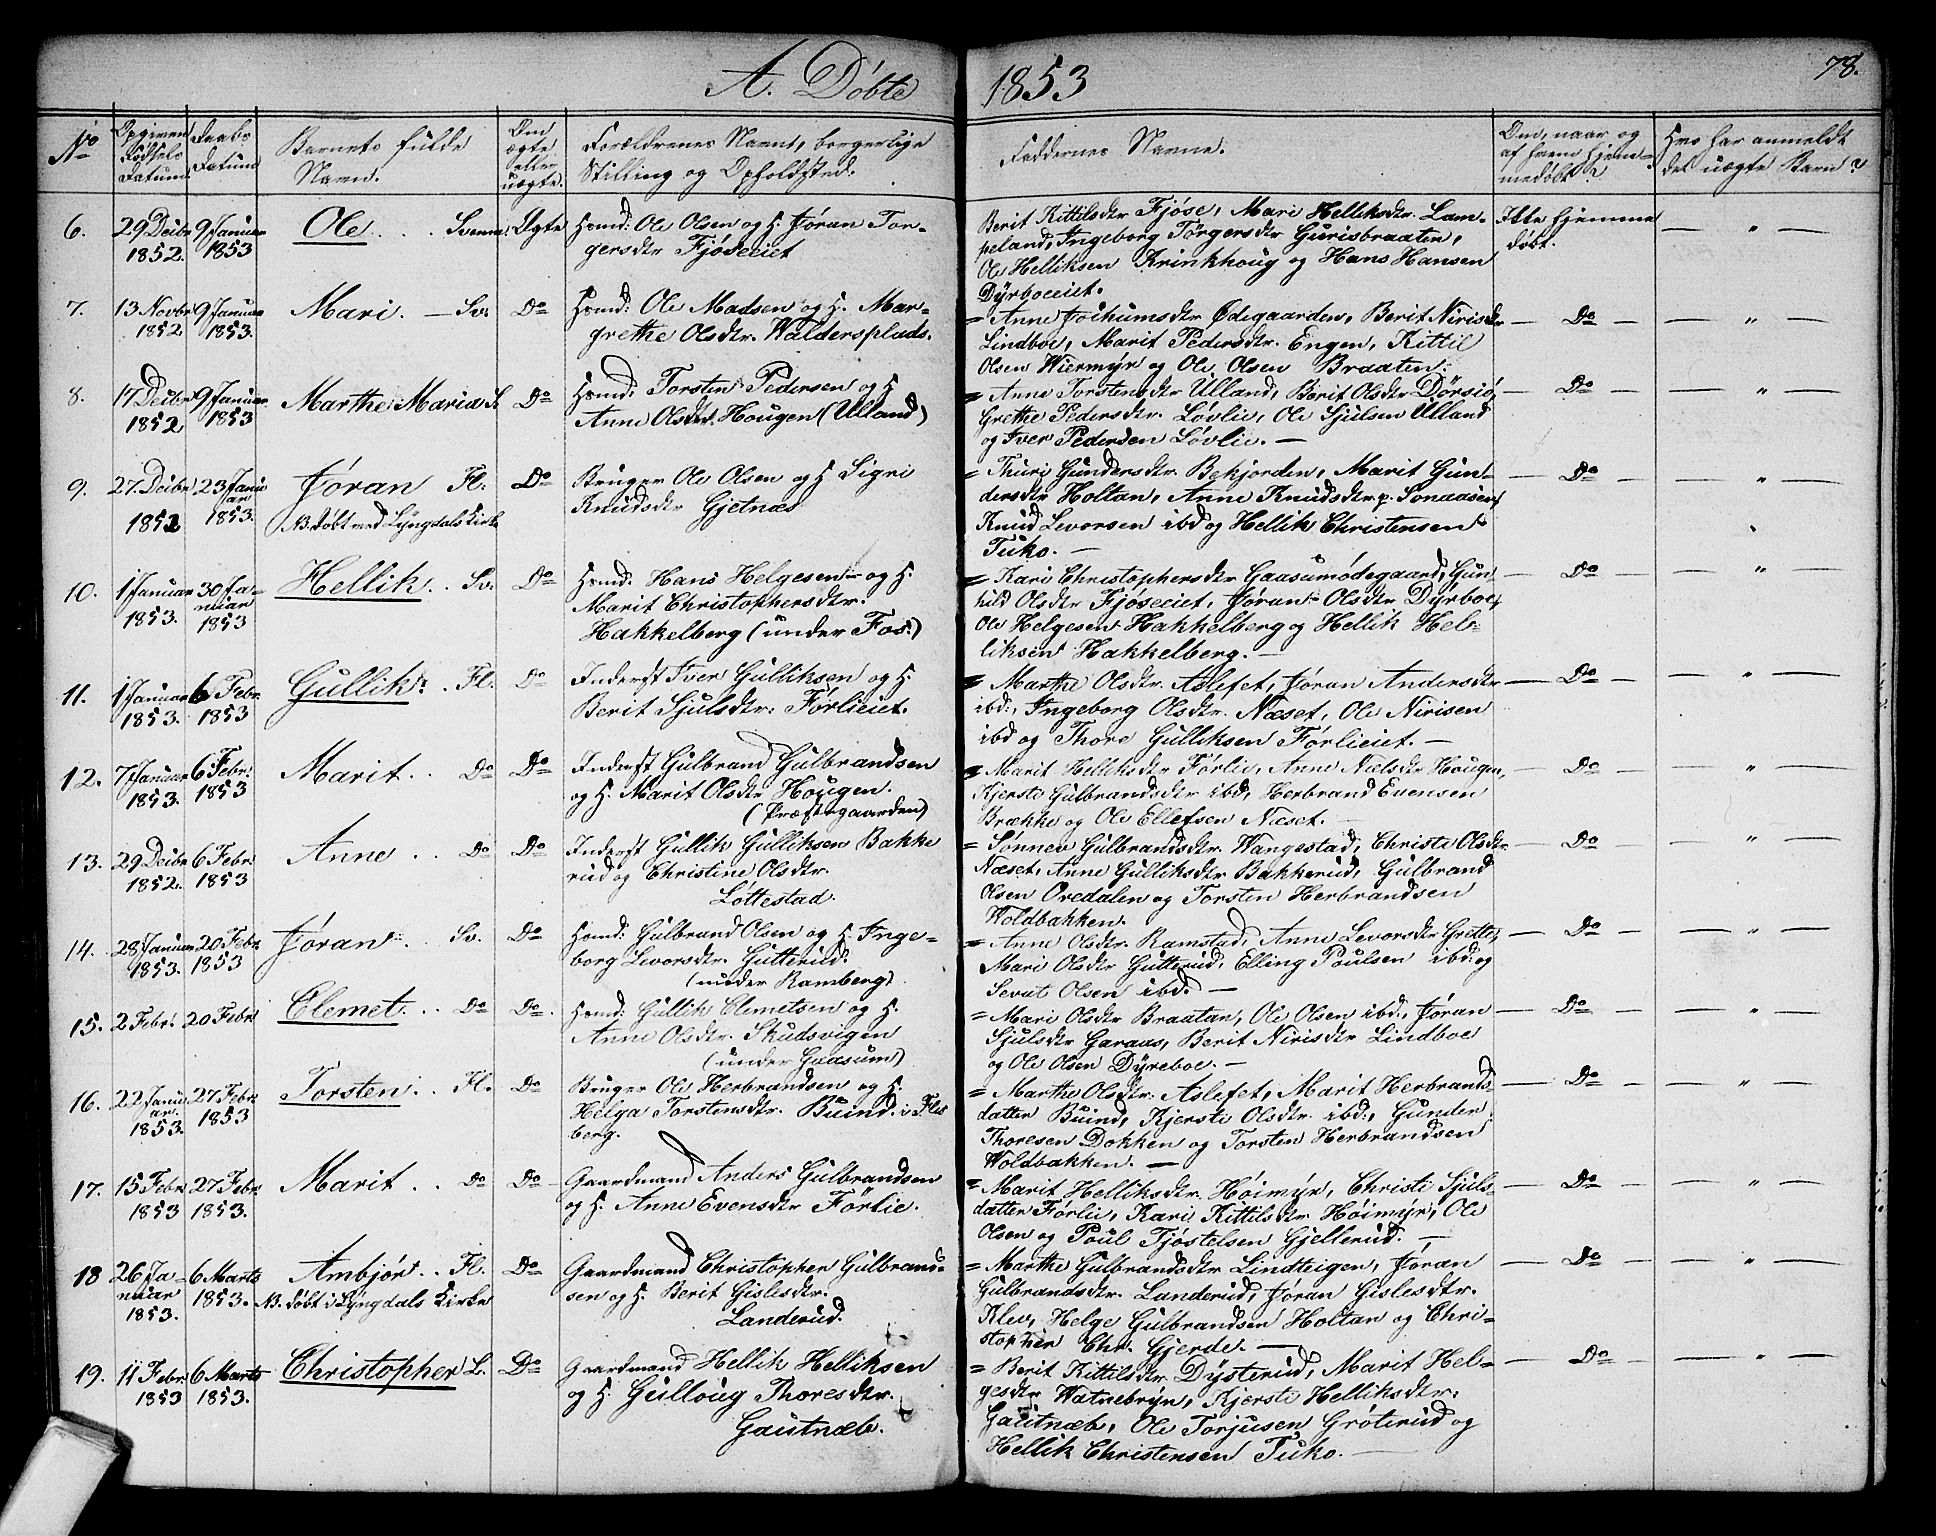 A. Døbte 1853
78.
No
Opgiven Fødsels Datum
Daabs Datum
Barnets fulde Navn.
Om ægte eller uægte.
Forældrenes Navne, borgerlige Stilling og Opholdsted.
Faddernes Navne.
Om, naar og af hvem hjemmedøbt?
Hvo har anmeldt det uægte Barn?
6. 29 Decbr 1852. 9 Januar 1853 Ole . . . Svenne. Ægte
Hsmd: Ole Olsen og H. Jøran Tor-
gersdtr Fjøseeiet
Berit Kittilsdtr Fjøse, Mari Helliksdtr. Lam-
peland, Ingeborg Torgersdtr Gurisbraaten,
Ole Helliksen Krinkhoug og Hans Hansen
Dyrboeeiet.
Ikke hjemme
døbt. — " —
7. 13 Novbr 1852 9 Januar 1853. Mari. — Sv. Do
Hsmd: Ole Madsen og H. Mar-
grethe Olsdtr. Waldersplads.
= Anne Jochumsdtr Ødegaarden, Berit Nirisdtr
Lindboe, Marit Pedersdtr. Engen, Kittil
Olsen Wiermyr og Ole Olsen Braaten:
— Do — — " —
8. 17 Decbr 1852 9 Januar 1853 Marthe Maria S. Do
Hsmd. Torsten Pedersen og H
Anne Olsdtr. Hougen (Ulland)
= Anne Torstensdtr Ulland, Berit Olsdtr Dørsiø,
Grethe Pedersdtr. Løvlie, Ole Sjulsen Ulland
og Iver Pedersen Løvlie. —
— Do — — " —
9. 27. Decbr 1852 23 Janu
ar 1853. Jøran Fl: Do
NB. døbt ved Lyngdals Kirke
Bruger Ole Olsen og H Sigri
Knudsdtr Gjetnæs
= Thuri Gundersdtr. Bekjorden, Marit Gun-
dersdtr Holtan, Anne Knudsdtr. p. Sonaasen,
Knud Levorsen ibd og Hellik Christensen
Tuko. —
— Do — — " —
10. 1 Januar 1853. 30 Ja-
nuar 1853 Hellik. . Sv. Do
Hsmd. Hans Helgesen og H.
Marit Christophersdtr.
Hakkelberg (under Fos.)
= Kari Christophersdtr Gaasumødegaard, Gun
hild Olsdtr Fjøseeiet, Jøran Olsdtr Dyrboe,
Ole Helgesen Hakkelberg og Hellik Hel-
liksen Hakkelberg. —
— Do — — " —
11. 1 Januar 1853. 6 Febr. 1853 Gullik. . Fl. Do
Inderst Iver Gulliksen og H.
Berit Sjulsdtr: Førlieiet.
= Marthe Olsdtr. Aslefet, Jøran Andersdtr
ibd:, Ingeborg Olsdtr. Næset, Ole Nirisen
ibd og Thore Gulliksen Førlieiet. —
— Do — — " —
12. 7 Januar 1853. 6 Febr. 1853 Marit. . Do Do
Inderst Gulbrand Gulbrandsen
og H. Marit Olsdtr Hougen.
(Præstegaarden)
= Marit Helliksdtr Førlie, Anne Nielsdtr Hougen,
Kjersti Gulbrandsdtr ibd, Herbrand Evensen
Brække og Ole Ellefsen Næset. —
— Do — — " —
13. 29 Decbr 1852. 6 Febr. 1853 Anne . . Do Do
Inderst Gullik Gulliksen Bakke
rud og Christine Olsdtr.
Løttestad.
= Sønnev Gulbrandsdtr. Wangestad, Christi Olsdtr.
Næset, Anne Gulliksdtr Bakkerud, Gulbrand
Olsen Ovedalen og Torsten Herbrandsen
Woldbakken.
— Do — — " —
14. 28 Januar 1853. 20 Febr. 1853 Jøran . . Sv. Do
Hsmd: Gulbrand Olsen og H. Inge-
borg Levorsdtr. Gutterud.
(under Ramberg)
= Anne Olsdtr. Ramstad, Anne Levorsdtr Grette,
Mari Olsdtr Gutterud, Elling Poulsen ibd. og
Sevat Olsen ibd. —
— Do — — " —
15. 2 Febr. 20 Febr. Clemet. . . Do Do.
Hsmd: Gullik Clemetsen og H.
Anne Olsdtr. Skudsvigen
(under Gaasum)
= Mari Olsdtr Braatan, Ole Olsen ibd., Jøran
Sjulsdtr Garaas, Berit Nirisdtr Lindboe
og Ole Olsen Dyreboe. —
— Do — — " —
16. 22 Janu
ar. 1853. 27 Febr. 1853 Torsten. . Fl. Do
Bruger Ole Herbrandsen og H.
Helga Torstensdtr. Buind. i Fles
berg.
= Marthe Olsdtr. Aslefet, Marit Herbrands-
datter Buind, Kjersti Olsdtr. ibd:, Gunder
Thoresen Dokken og Torsten Herbrandsen
Woldbakken. —
— Do — — " —
17. 15 Febr. 1853 27 Febr. 1853. Marit . . Do Do
Gaardmand Anders Gulbrandsen
og H. Anne Evensdtr Førlie.
= Marit Helliksdtr. Høimyr, Christi Sjuls-
datter Førlie, Kari Kittilsdtr. Høimyr, Ole
Olsen og Poul Tjøstelsen Gjellerud. —
— Do — — " —
18 26 Ja-
nuar 1853. 6 Marts 1853. Ambjør. . Fl. Do
NB. døbt i Lyngdals Kirke
Gaardmand Christopher Gulbrand-
sen og H. Berit Gislesdtr.
Landerud.
= Marthe Gulbrandsdtr Lindteigen, Jøran
Gulbrandsdtr. Landerud, Jøran Gislesdtr.
Klev, Helge Gulbrandsen Holtan og Chri-
stopher Chr. Gjerde. —
— Do — — " —
19. 11 Febr. 1853 6 Marts 1853. Christopher S. Do
Gaardmand Hellik Helliksen
og H. Gulloug Thoresdtr.
Gaustnæb.
= Berit Kittilsdtr. Dysterud, Marit Hel-
gesdtr Watnebryn, Kjersti Helliksdtr.
Gaustnæb, Ole Torjusen Grøterud og
Hellik Christensen Tuko. —
— Do — — " —